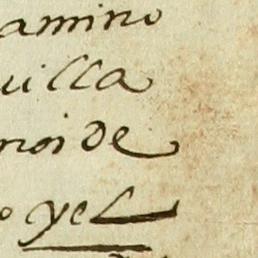 amino
uilla
noi de
o yel